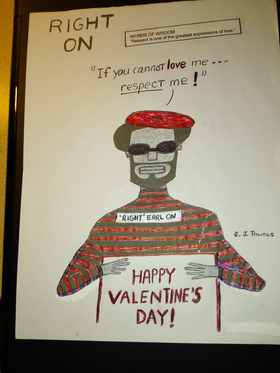 RIGHT
ON
WORDS OF WISDOM
"Respect is one of the greatest expressions of love."
"If you cannot love me ---
respect me!"
'RIGHT' EARL ON
E. J. Thomas
HAPPY
VALENTINE'S
DAY!